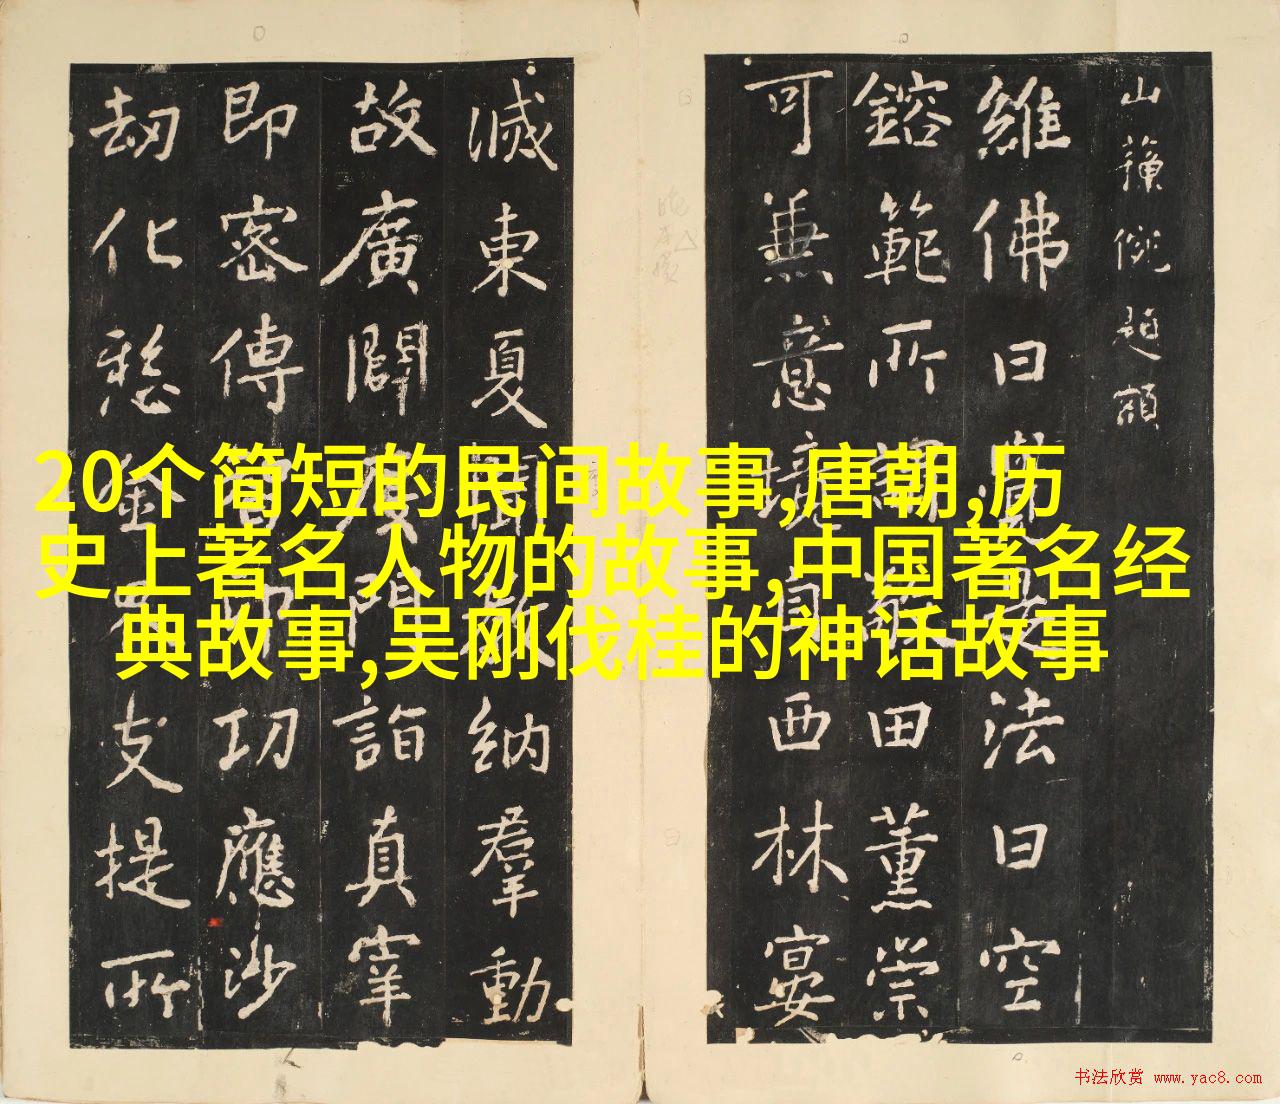 山額
維佛曰法曰空
鎔範所田薰崇
可兼意真西林宴
滅東夏納羣動
故廣闢門詣真宰
即密傳功應沙
劫化支提所
20个简短的民间故事,唐朝,历
史上著名人物的故事,中国著名经
典故事,吴刚伐桂的神话故事
书法欣赏 www.yac8.com